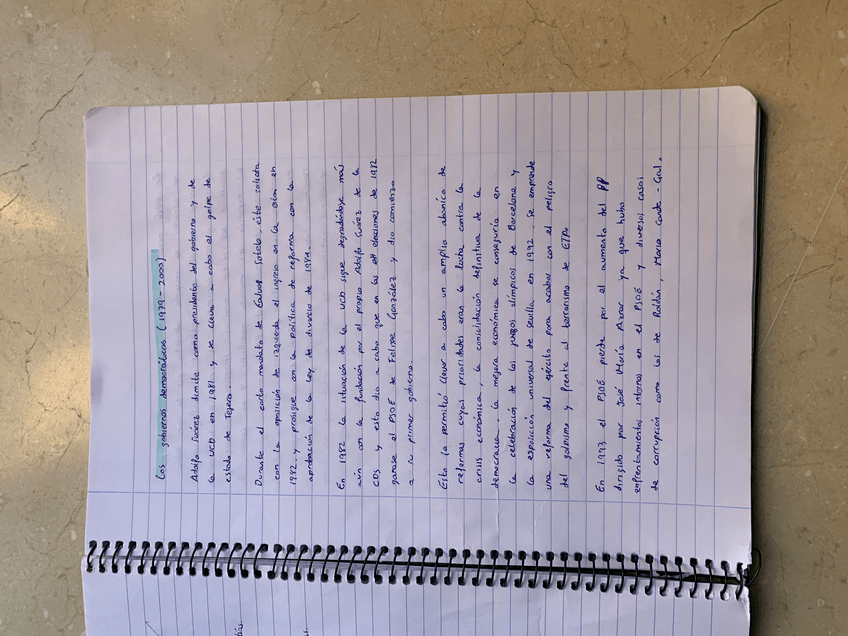 Los gobiernos democráticos (1979 - 2000)
Adolfo Suárez dimite como presidente del gobierno y de
la UCD en 1981 y se lleva a cabo el golpe de
estado de Tejero.
Durante el corto mandato de Calvo Sotelo, este solicita
con la oposición de izquierda el ingreso en la OTAN en
1982 y prosigue con la política de reforma con la
aprobación de la Ley de divorcio de 1981.
En 1982 la situación de la UCD sigue degradándose más
aún con la fundación por el propio Adolfo Suárez de la
CDS y esto dio a cabo que en las elecciones de 1982
ganase el PSOE de Felipe González y dio comienzo
a su primer gobierno.
Esto le permitió llevar a cabo un amplio abanico de
reformas cuyas prioridades eran la lucha contra la
crisis económica, la consolidación definitiva de la
democracia. La mejora económica se conseguiría en
la celebración de los juegos olímpicos de Barcelona y
la exposición universal de Sevilla en 1992. Se emprende
una reforma del ejército para acabar con el peligro
del golpismo y frente al terrorismo de ETA.
En 1993 el PSOE pierde por el aumento del PP
dirigido por José María Aznar ya que hubo
enfrentamientos internos en el PSOE y diversos casos
de corrupción como los de Roldán, Mario Conde - Gal.